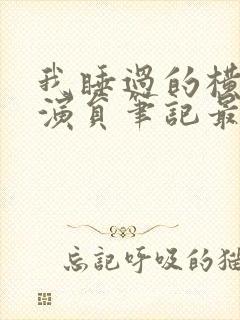 我睡過的橫
演員筆記最
忘記呼吸的猫